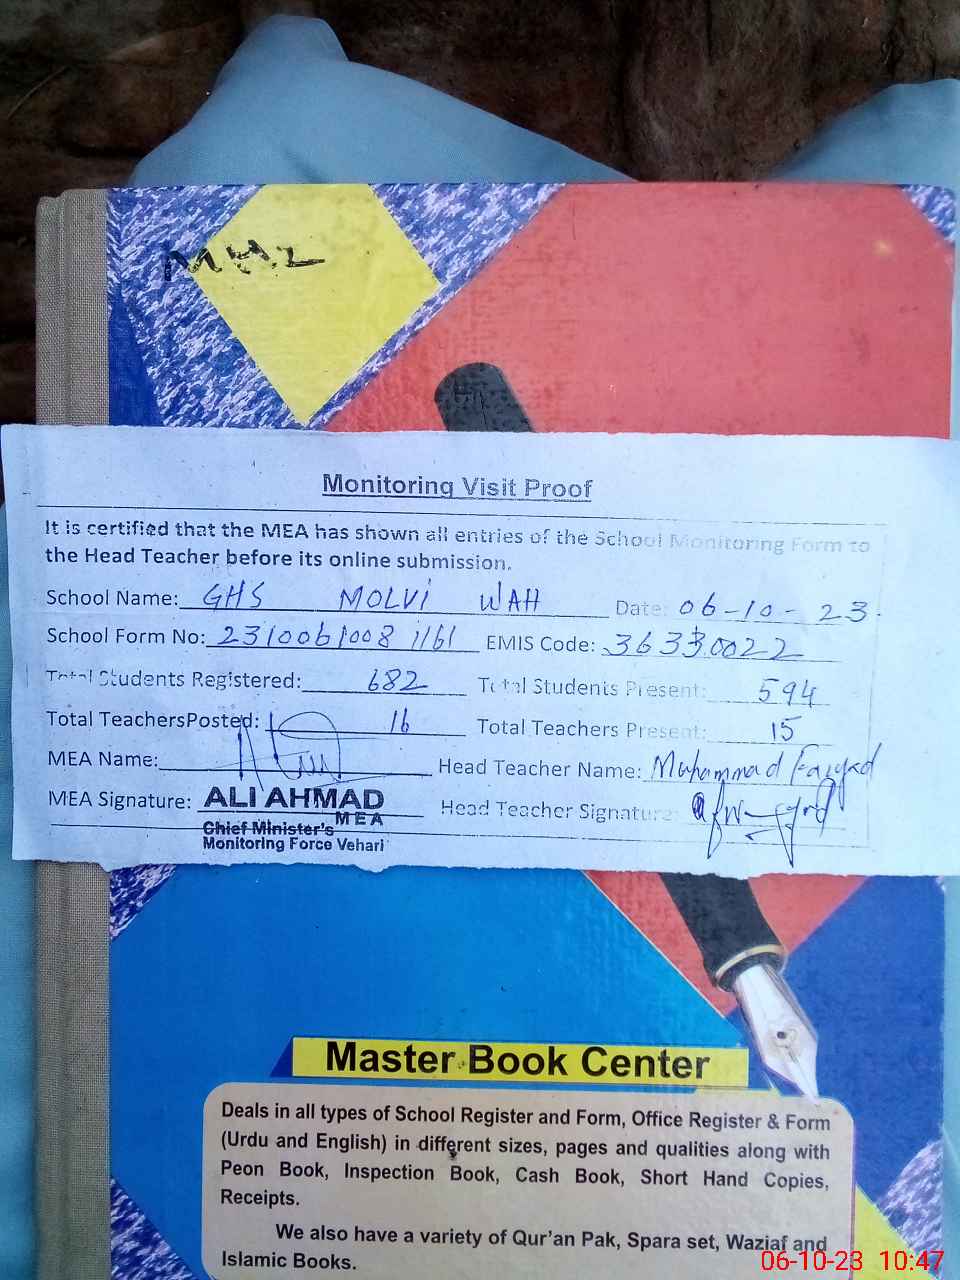 MHL
Monitoring Visit Proof
It is certified that the MEA has shown all entries of the School Monitoring Form to
the Head Teacher before its online submission.
School Name: GHS MOLVI WAH Date: 06-10-23.
School Form No: 2310061008 1161 EMIS Code: 36330022
Total Students Registered: 682 Total Students Present: 594
Total TeachersPosted: 16 Total Teachers Present: 15
MEA Name: Head Teacher Name: Muhammad Fayyad
MEA Signature: ALI AHMAD Head Teacher Signature:
MEA
Chief Minister's
Monitoring Force Vehari
Master Book Center
Deals in all types of School Register and Form, Office Register & Form
(Urdu and English) in different sizes, pages and qualities along with
Peon Book, Inspection Book, Cash Book, Short Hand Copies,
Receipts.
We also have a variety of Qur'an Pak, Spara set, Waziaf and
Islamic Books.
06-10-23 10:47